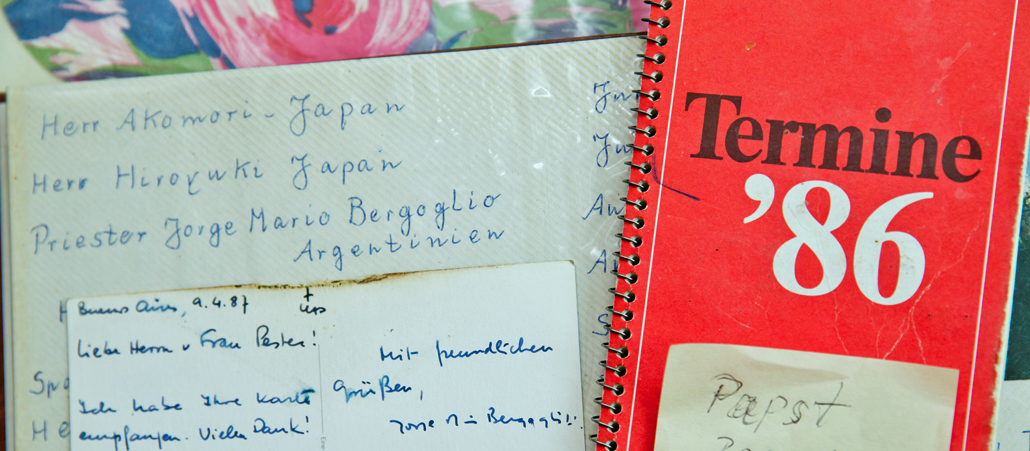 Herr Akomori - Japan
Herr Hiroyuki Japan
Priester Jorge Mario Bergoglio
Argentinien
Buenos Aires, 9.4.87
Liebe Herrn u Frau Pester!
Ich habe Ihre Karte
empfangen. Vielen Dank!
Mit freundlichen
Grüßen,
Jorge M Bergoglio
Termine
'86
Papst